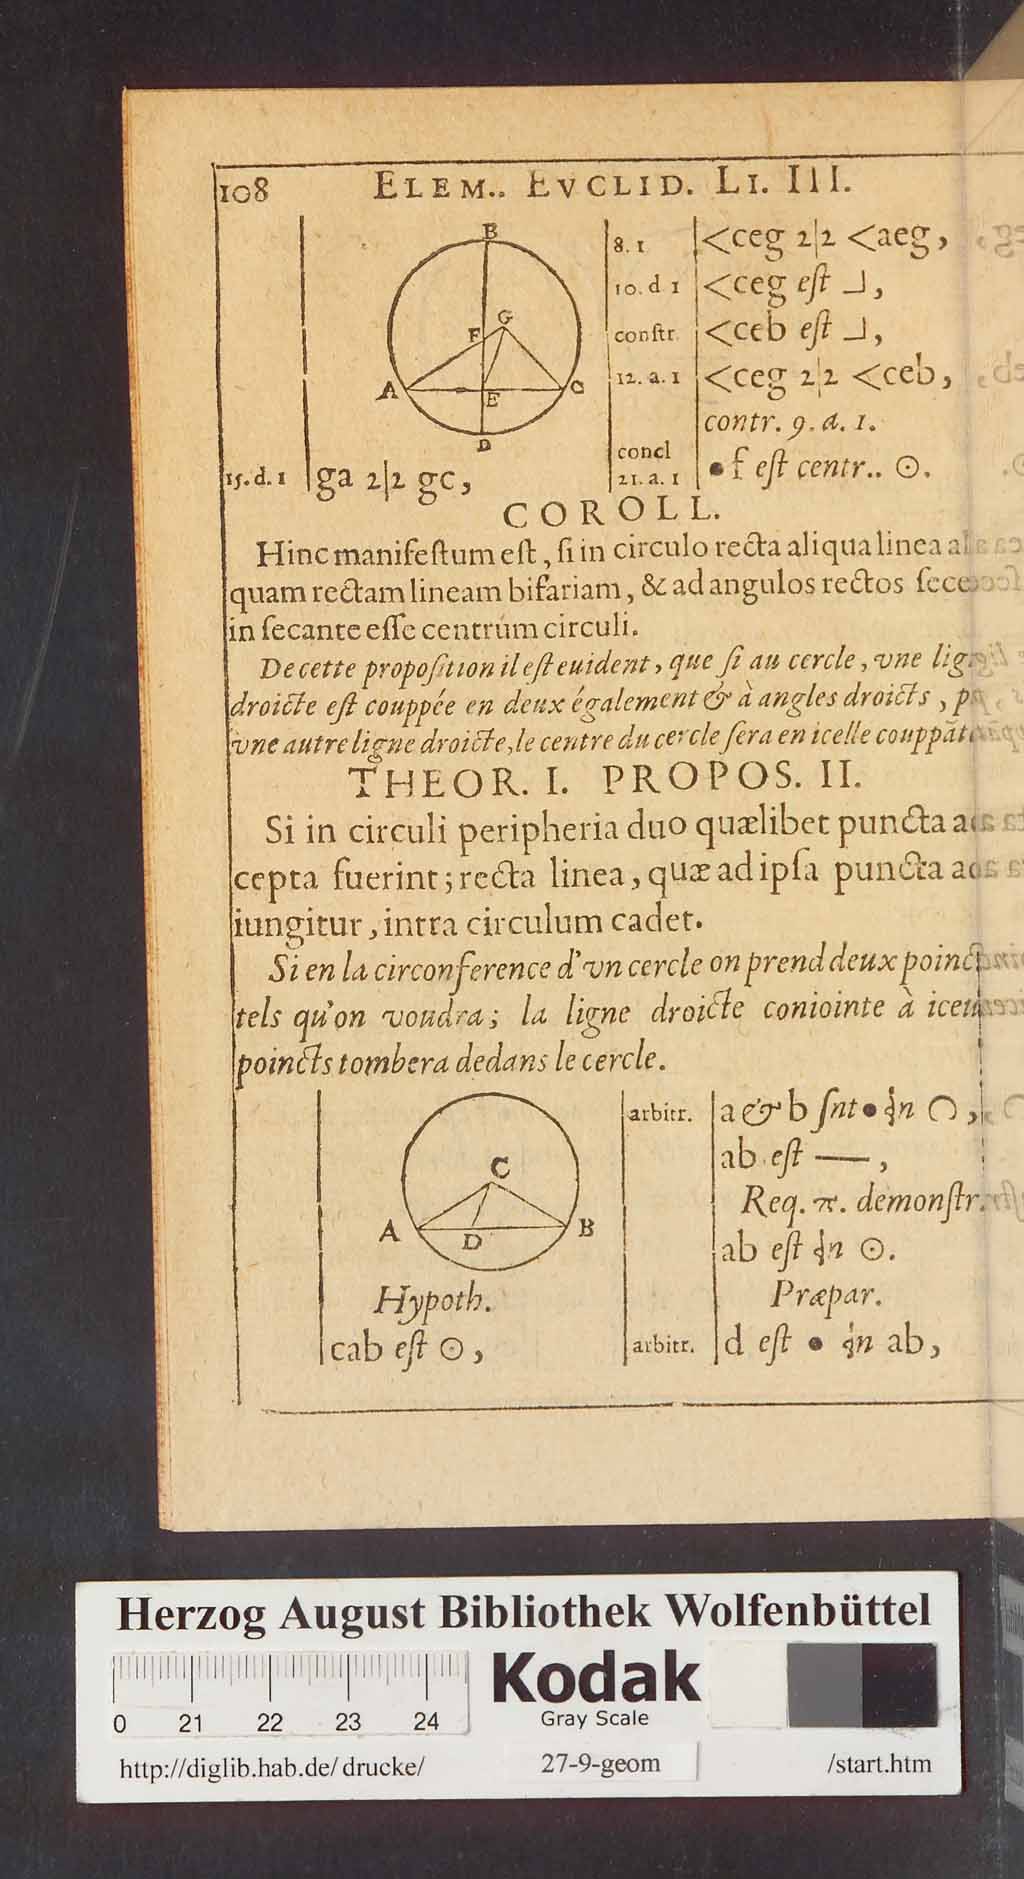 108 ELEM.. EVCLID. LI. III.
B
G
F
A
E
C
D
15. d. 1 ga 2|2 gc,
8. 1 <ceg 2|2 <aeg,
10. d 1 <ceg eſt ⅃,
conſtr. <ceb eſt ⅃,
12. a. 1 <ceg 2|2 <ceb,
contr. 9. a. 1.
concl
21. a. 1 • f eſt centr.. ⊙.
COROLL.
Hinc manifeſtum eſt, ſi in circulo recta aliqua linea
quam rectam lineam bifariam, & ad angulos rectos
in ſecante eſſe centrum circuli.
De cette propoſition il eſt euident, que ſi au cercle, vne
droicte eſt couppée en deux également & à angles droicts,
vne autre ligne droicte, le centre du cercle ſera en icelle
THEOR. I. PROPOS. II.
Si in circuli peripheria duo quælibet puncta
cepta fuerint; recta linea, quæ ad ipſa puncta
iungitur, intra circulum cadet.
Si en la circonference d'vn cercle on prend deux
tels qu'on voudra; la ligne droicte coniointe à
poincts tombera dedans le cercle.
C
A
D
B
Hypoth.
cab eſt ⊙,
arbitr. a & b ſnt • in ◠,
ab eſt —,
Req. π. demonſtr.
ab eſt in ⊙.
Præpar.
arbitr. d eſt • in ab,
Herzog August Bibliothek Wolfenbüttel
0 21 22 23 24
Kodak
Gray Scale
http://diglib.hab.de/drucke/ 27-9-geom /start.htm